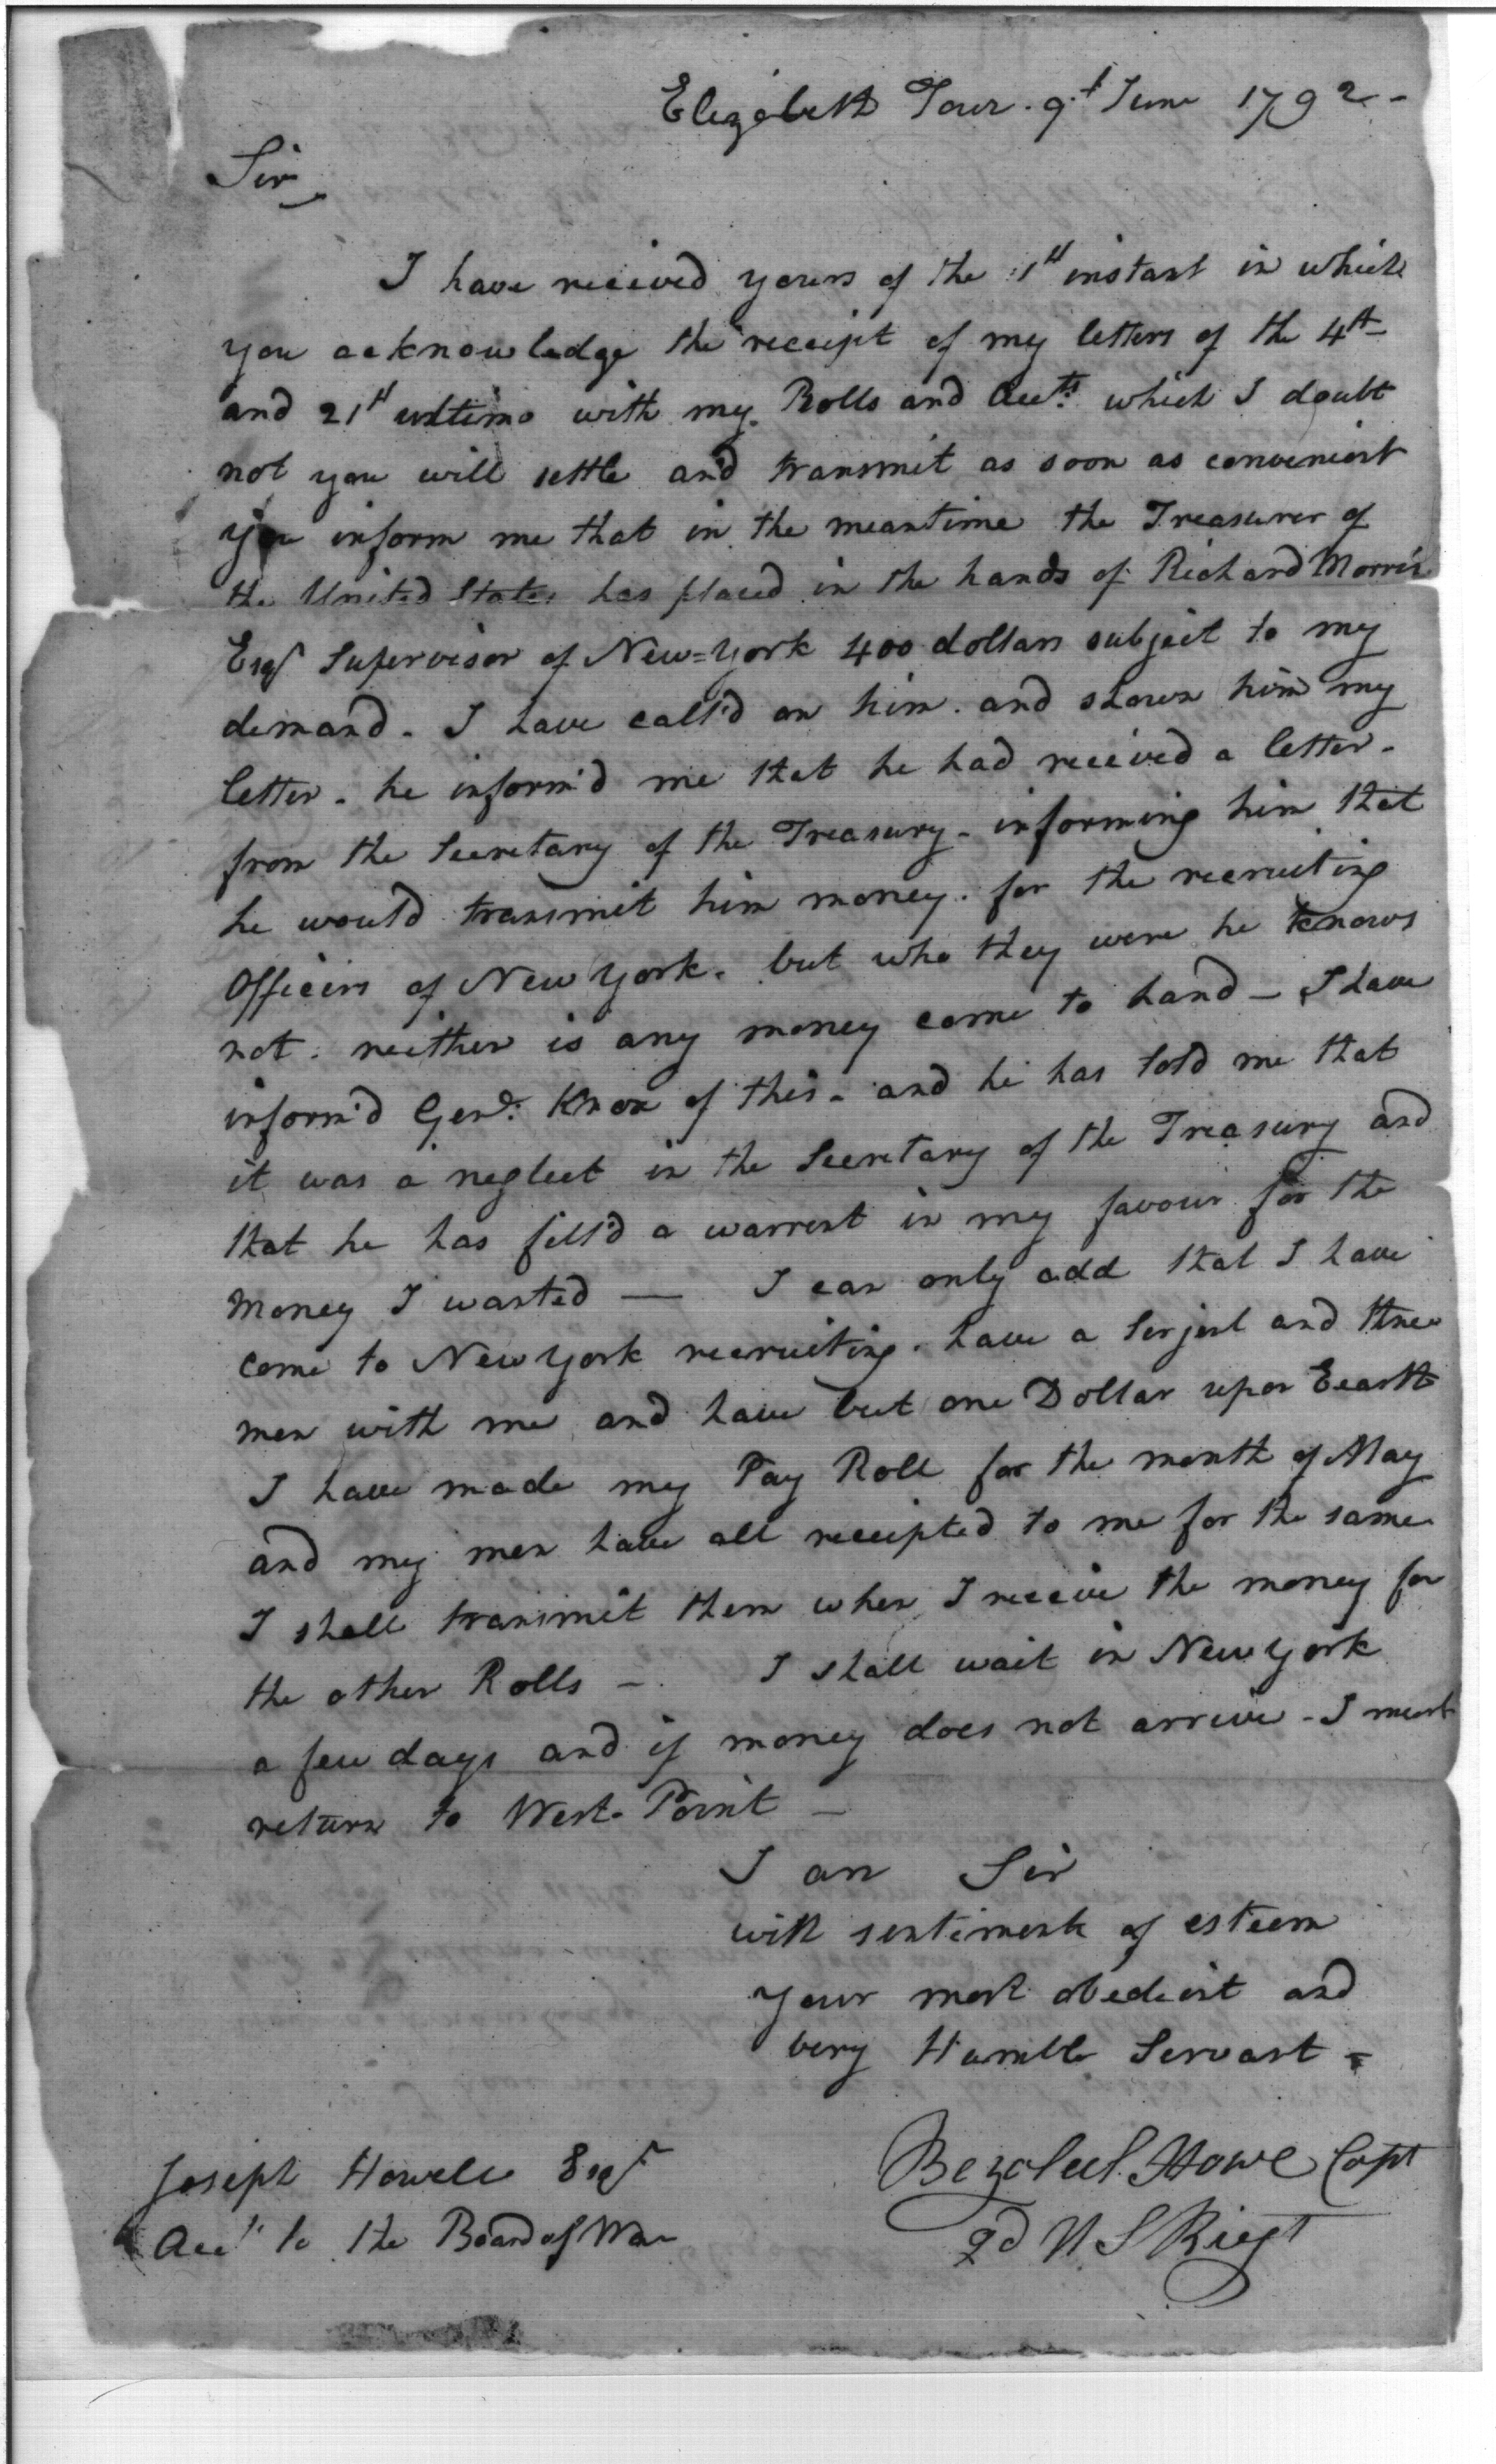 Elizabeth Town. 9.t June 1792-
Sir
I have received yours of the 1st instant in which
you acknowledge the receipt of my letters of the 4th
and 21st ultimo with my Rolls and Accts. which I doubt
not you will settle and transmit as soon as convenient
you inform me that in the meantime the Treasurer of
the United States has placed in the hands of Richard Morris
Esqr Supervisor of New=York 400 dollars subject to my
demand. I have call'd on him. and shown him my
letter. he inform'd me that he had received a letter.
from the Secretary of the Treasury - informing him that
he would transmit him money. for the recruiting
Officers of New York. but who they were he knows
not. neither is any money come to hand - I have
inform'd Genl. Knox of this. and he has told me that
it was a neglect in the Secretary of the Treasury and
that he has fill'd a warrent in my favour for the
Money I wanted — I can only add that I have
come to New York recruiting. have a Serjent and three
men with me and have but one Dollar upon Eearth
I have made my Pay Roll for the month of May
and my men have all receipted to me for the same
I shall transmit them when I receive the money for
the other Rolls - I shall wait in New York
a few days and if money does not arrive - I must
return to West Point -
I am Sir
with sentiments of esteem
your most obedient and
very Humble Servant =
Bezaleel Howe Capt
2d U S Regt
Joseph Howell Esqr
Acct to the Board of War